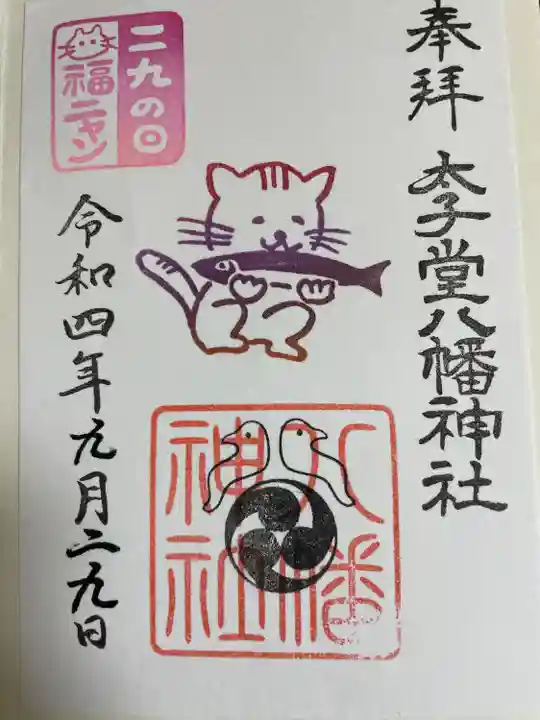 奉拝
太子堂八幡神社
二九の日
福ニャン
八幡
神社
令和四年九月二九日